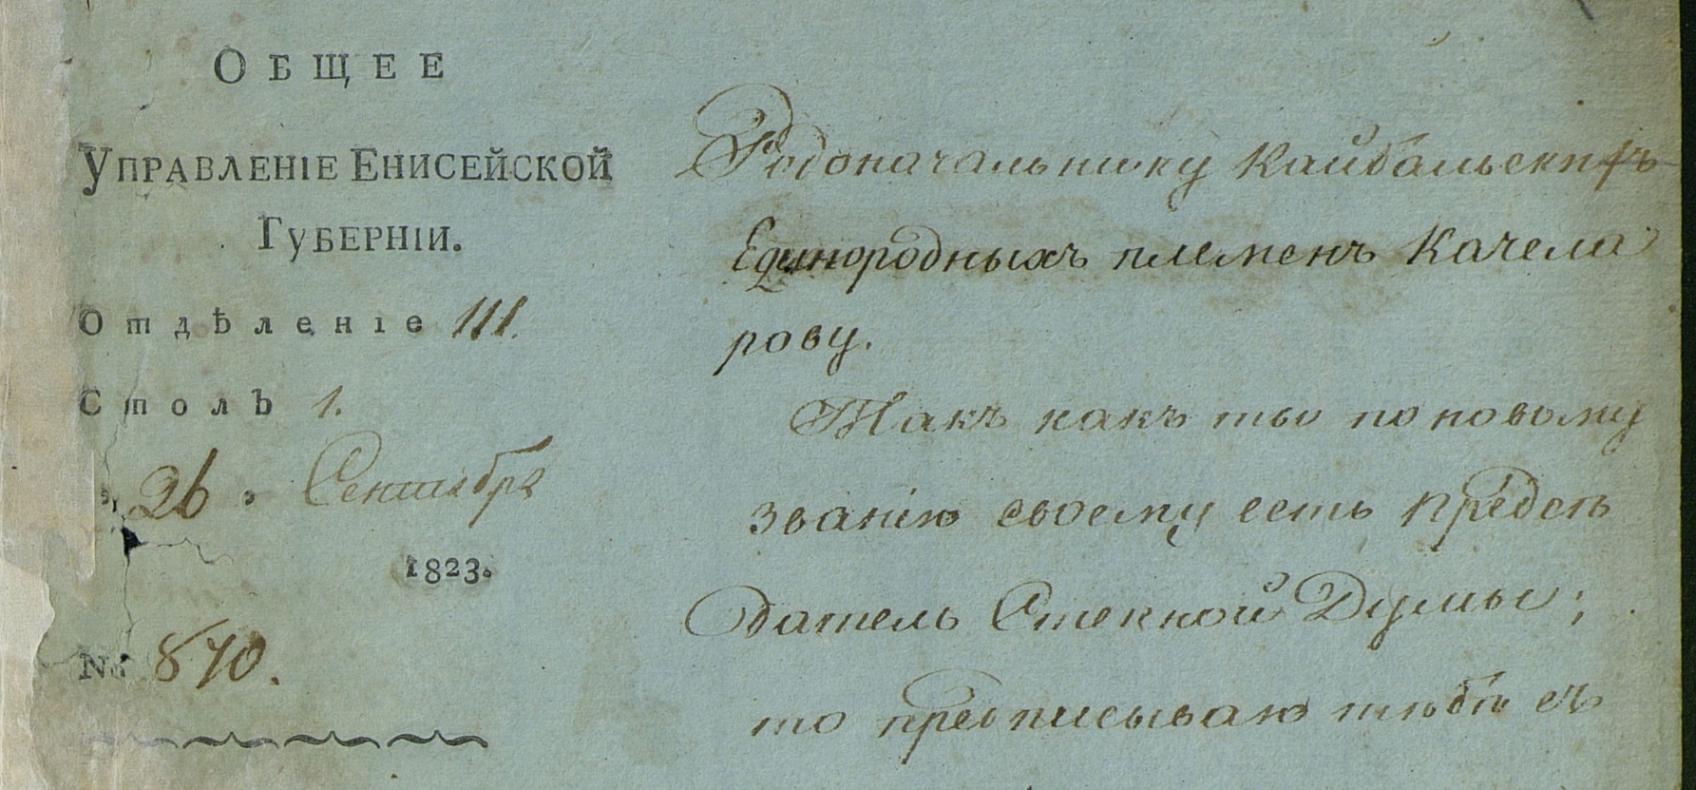 ОБЩЕЕ
УПРАВЛЕНІЕ ЕНИСЕЙСКОЙ
ГУБЕРНІИ.
Отдѣленіе III.
Столъ 1.
„ 26 „ Сентября
1823.
№ 870.
Родоначальнику Кайбальскихъ
Единородныхъ племенъ Качела
рову.
Такъ какъ ты по новому
званію своему есть предсѣ
датель Степной Думы;
то предписываю тѣбѣ съ